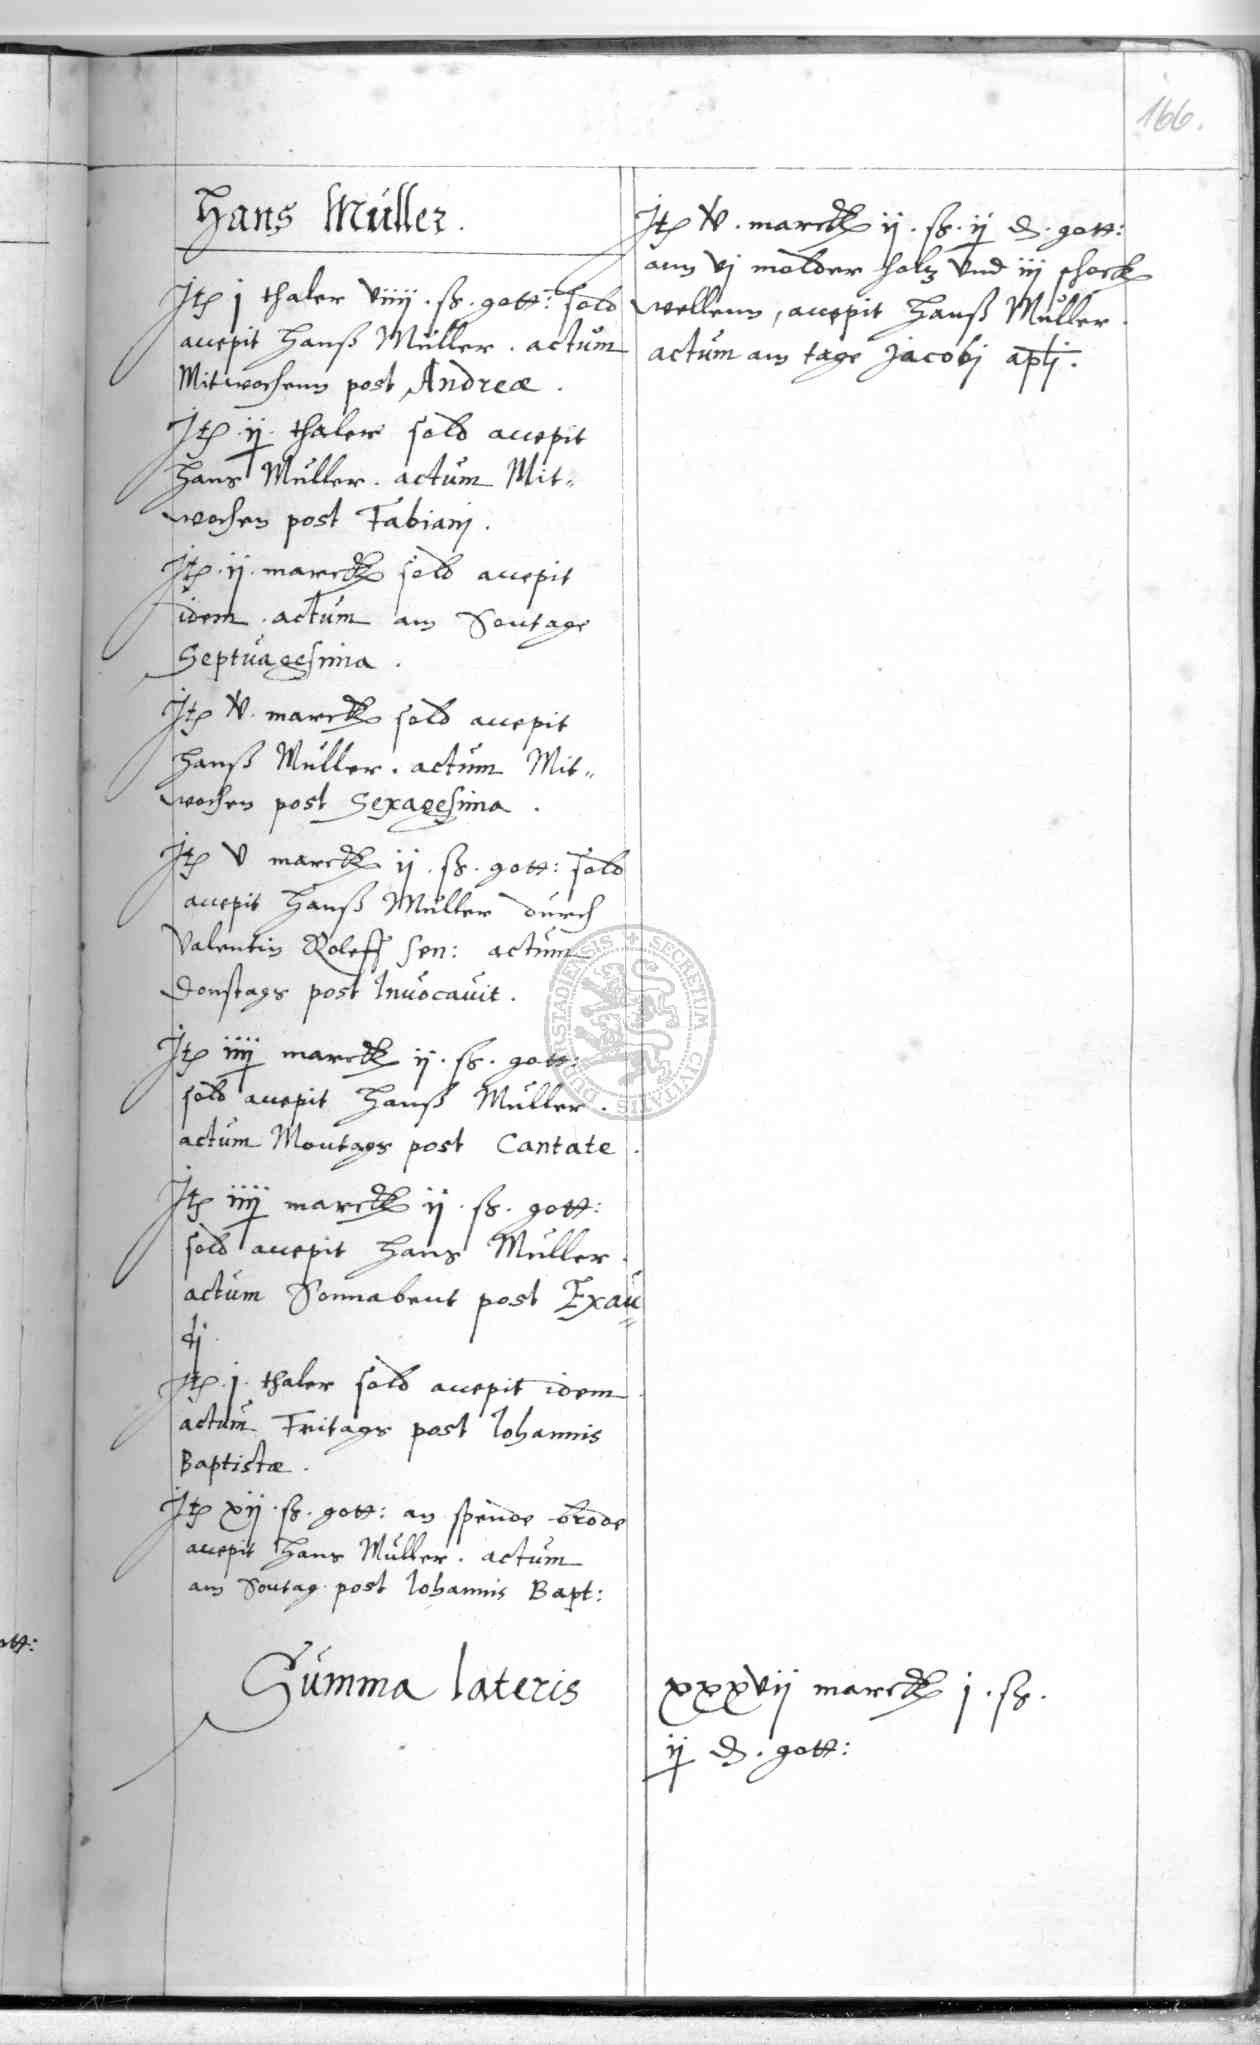 166.
Hans Müller.
Itē j thaler viiij . ß . gott: sold
accepit Hanß Müller . actum
Mitwochenn post Andreæ .
Itē ij thaler sold accepit
Hans Müller . actum Mit=
wochen post Fabianj .
Itē . ij . marck sold accepit
idem . actum am Sontage
Septuagesima .
Itē v . marck sold accepit
Hanß Müller . actum Mit=
wochen post Sexagesima .
Itē v marck ij . ß . gott: sold
accepit Hanß Müller durch
Valentin Roleff sen: actum
Donstags post Invocavit .
Itē iiij marck ij . ß . gott:
sold accepit Hanß Müller .
actum Montags post Cantate .
Itē iiij marck ij . ß . gott:
sold accepit Hans Müller .
actum Sonnabent post Exau=
dj
Itē . j . thaler sold accepit idem
actum Fritags post Iohannis
Baptistæ .
Itē xij . ß . gott: an spende brode
accepit Hans Müller . actum
am Sontag post Iohannis Bapt:
Itē v . marck ij . ß . ij d . gott:
ann vj malder holtz vnd iij schock
wellenn, accepit Hanß Müller .
actum am tage Jacobj aplj .
Summa lateris
xxxvij marck j . ß .
ij d . gott:
ott:
SECRETUM CIVITATIS DUDERSTADIENSIS